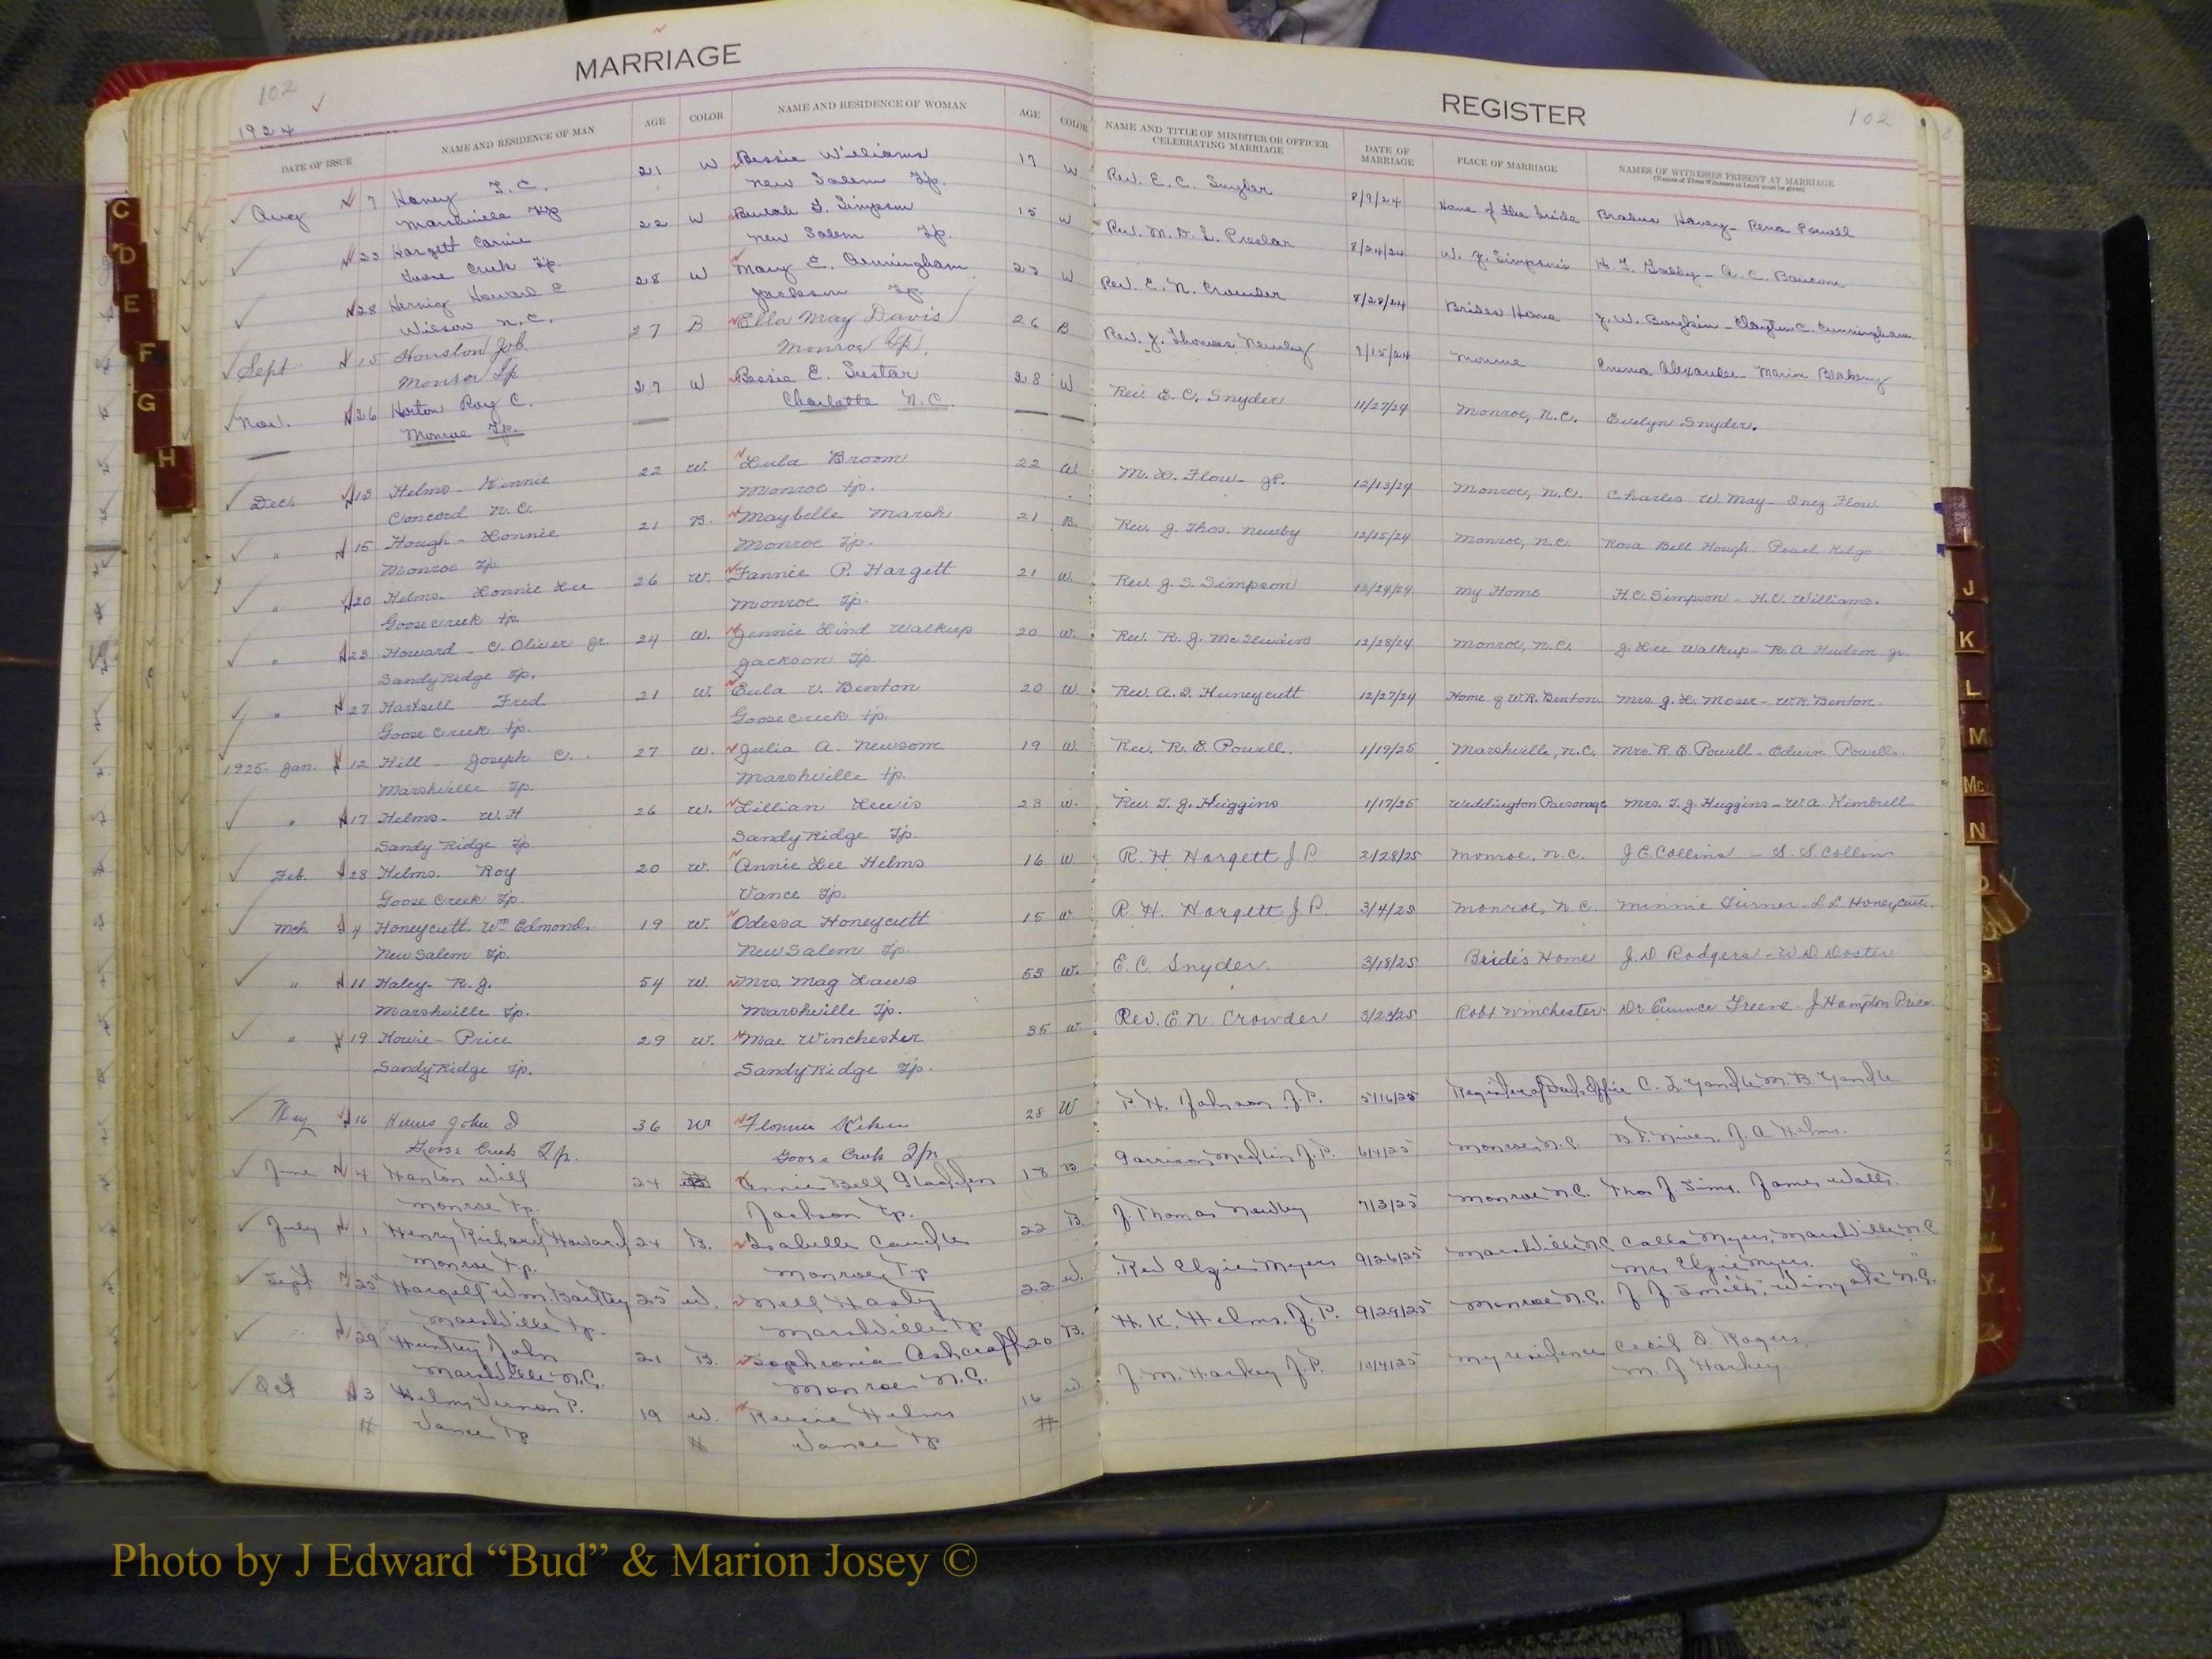 MARRIAGE
102
1924
DATE OF ISSUE NAME AND RESIDENCE OF MAN AGE COLOR NAME AND RESIDENCE OF WOMAN AGE COLOR
Aug 7 Haney T. C. 21 W Bessie Williams 17 W
Marshville Tp New Salem Tp.
23 Hargett Carme 22 W Beulah T. Simpson 15 W
Goose Creek Tp. New Salem Tp.
28 Hernig Howard C 28 W Mary E. Cunningham 23 W
Wilson N.C. Jackson Tp.
Sept 15 Houston Job 27 B Ella May Davis 26 B
Monroe Tp Monroe Tp.
Nov. 26 Horton Roy C. 27 W Bessie E. Sustar 28 W
Monroe Tp. Charlotte N.C.
Dec. 13 Helms - Kinnie 22 W. Lula Broom 22 W
Concord N.C. Monroe tp.
" 15 Hough - Lonnie 21 B. Maybelle Marsh 21 B.
Monroe Tp. Monroe Tp.
" 20 Helms. Lonnie Lee 26 W. Fannie P. Hargett 21 W.
Goose Creek tp. Monroe Tp.
" 23 Howard - C. Oliver Jr. 24 W. Jennie Lind Walkup 20 W.
Sandy Ridge Tp. Jackson Tp.
" 27 Hartsell Fred 21 W. Eula V. Benton 20 W.
Goose Creek tp. Goose Creek tp.
1925 - Jan. 12 Hill - Joseph C. 27 W. Julia A. Newsome 19 W.
Marshville Tp. Marshville tp.
" 17 Helms - W. H 26 W. Lillian Lewis 23 W.
Sandy Ridge Tp. Sandy Ridge Tp.
Feb. 28 Helms. Roy 20 W. Annie Lee Helms 16 W
Goose Creek Tp. Vance Tp.
Mch. 4 Honeycutt. Wm Edmond. 19 W. Odessa Honeycutt 15 W
New Salem Tp. New Salem Tp.
" 11 Haley - R. J. 54 W. Mrs. Mag Laws 53 W.
Marshville Tp. Marshville Tp.
" 19 Howie - Price 29 W. Mae Winchester 35 W.
Sandy Ridge Tp. Sandy Ridge Tp.
May 16 Helms John D 36 W 28 W
Goose Creek Tp. Goose Creek Tp
June 4 Will 24 B Annie Bell 18 B
Monroe Tp. Jackson Tp.
July 1 Henry Richard Howard 24 B. Isabelle Caudle 22 B.
Monroe Tp. Monroe Tp
Sept 25 Hargett Wm. Bartley 25 W. Nell Hasty 22 W.
Marshville Tp. Marshville Tp
" 29 Huntley John 21 B. Sophronia Ashcraft 20 B.
Marshville N.C. Monroe N.C.
Oct 3 Helms Vernon P. 19 W. Helms 16 W.
# Vance Tp # Vance Tp #
REGISTER
102
NAME AND TITLE OF MINISTER OR OFFICER CELEBRATING MARRIAGE DATE OF MARRIAGE PLACE OF MARRIAGE NAMES OF WITNESSES PRESENT AT MARRIAGE
(Names of Three Witnesses at Least must be given)
Rev. E. C. Snyder 8/9/24 Home of the bride Haney - Rena Powell
Rev. M. D. L. Preslar 8/24/24 W. J. Simpson's
Rev. E. N. Crowder 8/28/24 Brides Home J. W. Boykin - Clayton C. Cunningham
Rev. J. Thomas Newby 9/15/24 Monroe Emma Alexander - Marie Blakeney
Rev. E. C. Snyder 11/27/24 Monroe, N.C. Evelyn Snyder.
M. L. Flow - JP. 12/13/24 Monroe, N.C. Charles W. May - Inez Flow
Rev. J. Thos. Newby 12/15/24 Monroe, N.C. Rosa Bell Hough - Pearl Kilgo
Rev. J. S. Simpson 12/24/24 My Home H. C. Simpson - H. C. Williams.
Rev. R. J. McIlwain 12/28/24 Monroe, N.C. J. Lee Walkup - R. A. Hudson Jr.
Rev. A. I. Huneycutt 12/27/24 Home of W. R. Benton. Mrs. J. L. Moser - W. R. Benton.
Rev. R. E. Powell. 1/19/25 Marshville, N.C. Mrs. R. E. Powell - Edwin Powell.
Rev. T. J. Huggins 1/17/25 Weddington Parsonage Mrs. T. J. Huggins - W. A. Kimbrell
R. H. Hargett J P 2/28/25 Monroe, N.C. J. E. Collins - S. S. Collins
R. H. Hargett J. P. 3/4/25 Monroe, N.C. Minnie Turner - L L Honeycutt.
E. C. Snyder. 3/18/25 Bride's Home J. D Rodgers - W. D Doster
Rev. E N Crowder 3/23/25 Robt Winchester Dr Eunice Greene - J Hampton Price.
P. H. Johnson J. P. 5/16/25 Register of Deeds Office C. L. Yandle M. B. Yandle
Garrison Medlin J. P. 6/4/25 Monroe N.C. B. F. Niven, J. A. Helms.
J. Thomas Newby 7/3/25 Monroe N.C. Thos J. Sims, James Watts.
Rev Elzie Myers 9/26/25 Marshville N.C. Calla Myers, Marshville N.C
Mrs Elzie Myers. " "
H. K. Helms, J. P. 9/29/25 Monroe N.C. J J Smith, Wingate N.C.
J. M. Harkey J. P. 10/4/25 My residence Cecil D. Rogers.
M. J Harkey
C
D
E
F
G
H
J
K
L
M
Mc
N
Photo by J Edward “Bud” & Marion Josey ©